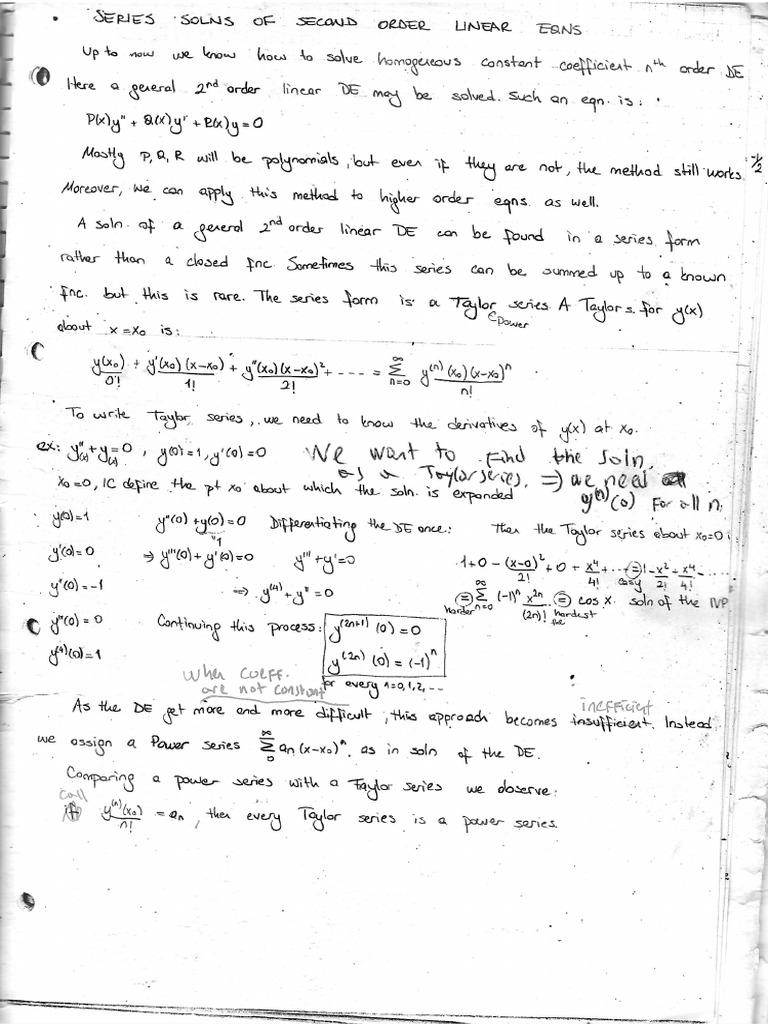 • SERIES SOLNS OF SECOND ORDER LINEAR EQNS
Up to now we know how to solve homogeneous constant coefficient nth order DE
Here a general 2nd order linear DE may be solved. Such an eqn. is:
P(x)y" + Q(x)y' + R(x)y = 0
Mostly P, Q, R will be polynomials, but even if they are not, the method still works.
-1/2
Moreover, we can apply this method to higher order eqns. as well.
A soln. of a general 2nd order linear DE can be found in a series form
rather than a closed fnc. Sometimes this series can be summed up to a known
fnc. but this is rare. The series form is a Taylor series. A Taylor s. for y(x)
Power
about x=x0 is:
y(x0)/0! + y'(x0)(x-x0)/1! + y"(x0)(x-x0)^2/2! + ---- = ∑_{n=0}^{∞} y^(n)(x0)(x-x0)^n/n!
To write Taylor series, we need to know the derivatives of y(x) at x0.
ex: y"(x) + y(x) = 0, y(0)=1, y'(0)=0 We want to find the soln.
as a Taylor series. ⇒ we need
x0=0, IC define the pt x0 about which the soln. is expanded y^(n)(0) for all n.
y(0)=1 y"(0)+y(0)=0 Differentiating the DE once: Then the Taylor series about x0=0:
"1
y'(0)=0 ⇒ y'''(0)+y'(0)=0 y'''+y'=0 1+0-(x-0)^2/2!+0+x^4/4!+... = 1-x^2/2!+x^4/4!-.....
easy
y"(0)=-1 ⇒ y^(4)+y"=0 = ∑_{n=0}^{∞} (-1)^n x^2n/(2n)! = cos x. soln of the IVP
harder hardest
y'''(0)=0 Continuing this process: y^(2n+1)(0)=0
y^(4)(0)=1 y^(2n)(0)=(-1)^n
for every n=0,1,2,--
when coeff.
are not constant
inefficient
As the DE get more and more difficult, this approach becomes insufficient. Instead
we assign a Power series ∑_{0}^{∞} an(x-x0)^n. as in soln of the DE.
Comparing a power series with a Taylor series we observe:
call
if y^(n)(x0)/n! = an, then every Taylor series is a power series.